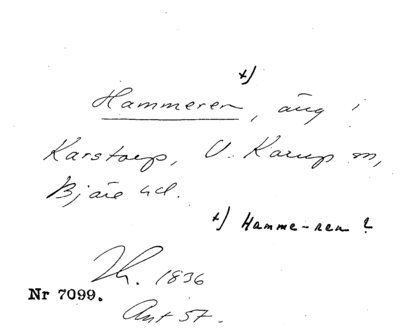 +)
Hammeren, äng i
Karstorp, V. Karup sn,
Bjäre hd.
+) Hamme-ren ?
Lh. 1836
Nr 7099.
Ant 57.